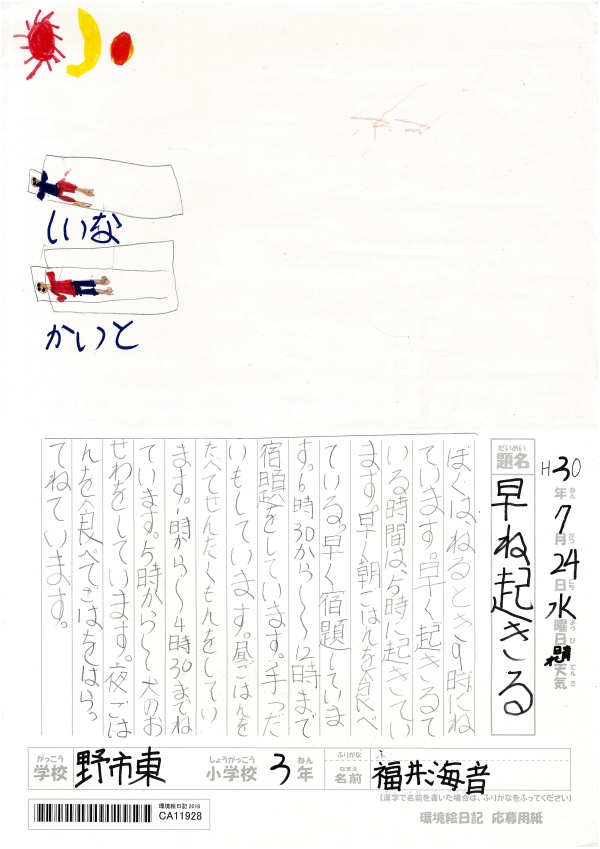 しいな
かいと
H30年7月24日水曜日晴天気
ねん
がつ
にち
ようび
てんき
だいめい
題名
早ね起きる
ぼくは、ねるとき9時にね
ています。早く起きるて
いる時間は、5時に起きてい
ます。早く朝ごはんを食べ
ている。早く宿題していま
す。6時30から〜12時まで
宿題をしています。手つだ
いもしています。昼ごはんを
たべてせんたくもんをしてい
ます。1時から〜4時30までね
ています。5時から〜犬のお
せわをしています。夜ごは
んを食べてごはをはらっ
てねています。
がっこう
学校
野市東
しょうがっこう
小学校
3
ねん
年
ふりがな
なまえ
名前
福井海音
(漢字で名前を書いた場合は、ふりがなをふってください)
環境絵日記 2018
CA11928
環境絵日記 応募用紙